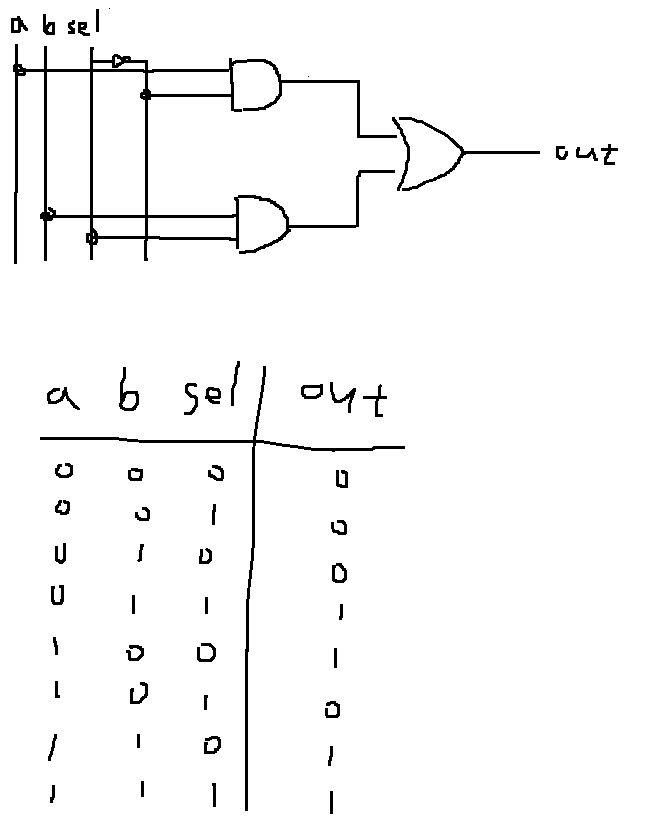 a b sel
out
a b sel out
0 0 0 0
0 0 1 0
0 1 0 0
0 1 1 1
1 0 0 1
1 0 1 0
1 1 0 1
1 1 1 1